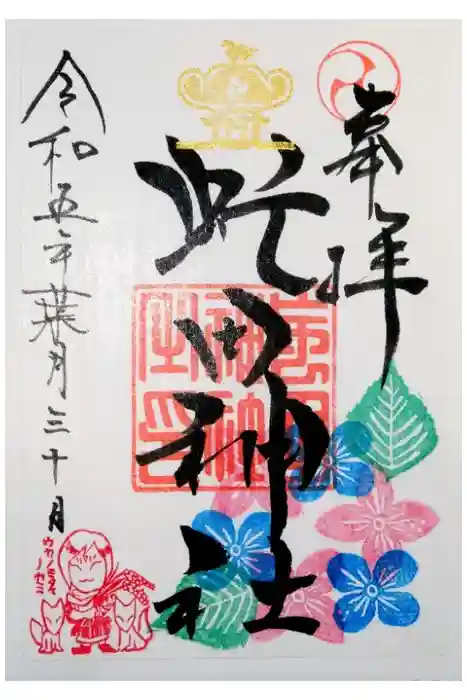 奉拝
蛇田神社
令和五年葉月三十日
ウカノミタマ
ノカミ